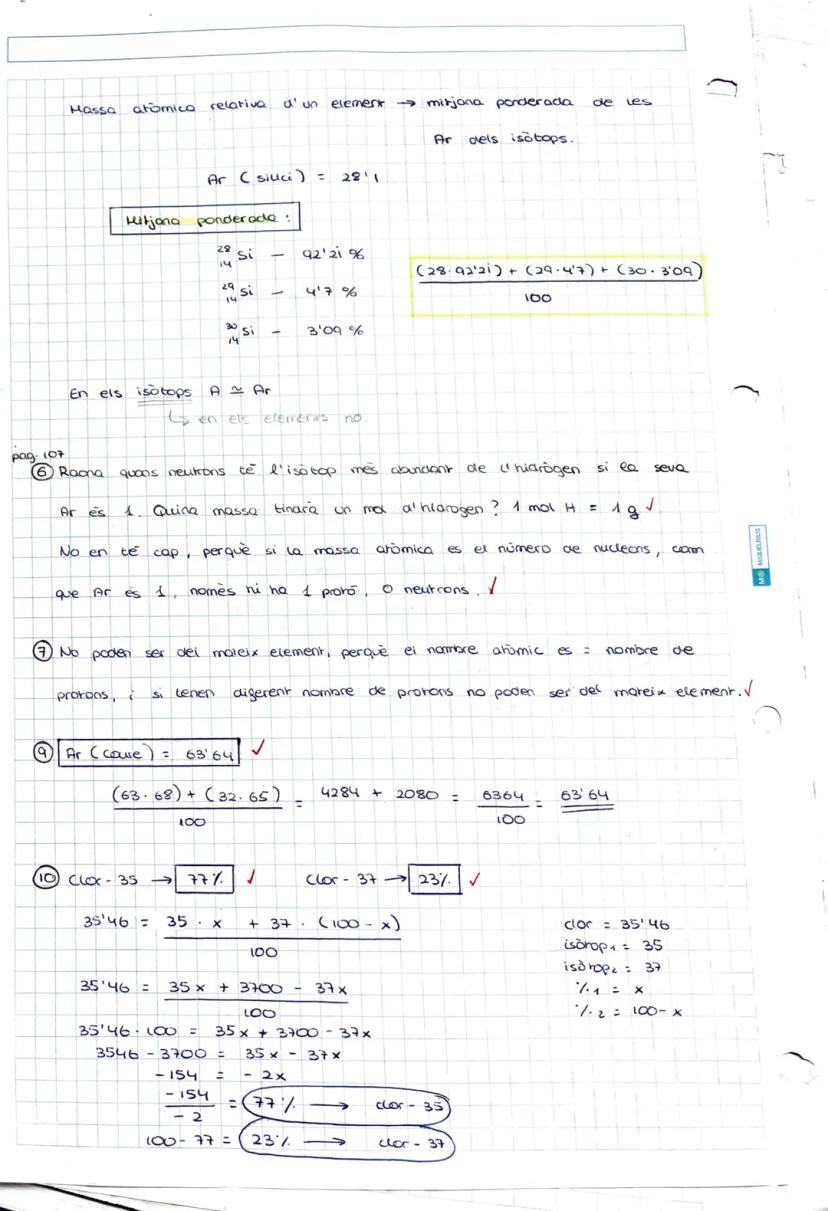 Massa atòmica relativa d'un element → mitjana ponderada de les
Ar dels isòtops.
Ar (silici) = 28'1
Mitjana ponderada :
²⁸₁₄Si - 92'21 %
(28·92'21) + (29·4'7) + (30·3'09)
100
²⁹₁₄Si - 4'7 %
³⁰₁₄Si - 3'09 %
En els isòtops A ≃ Ar
↳ en els elements no.
pag. 107
⑥ Raona quans neutrons té l'isòtop més abundant de l'hidrògen si la seva
Ar és 1. Quina massa tindrà un mol d'hidrogen? 1 mol H = 1 g ✓
No en té cap, perquè si la massa atòmica es el número de nucleons, com
que Ar és 1, només hi ha 1 protó, 0 neutrons. ✓
⑦ No poden ser del mateix element, perquè el nombre atòmic es = nombre de
protons, i si tenen digerent nombre de protons no poden ser del mateix element. ✓
⑨ Ar (coure) = 63'64 ✓
(63·68) + (32·65) = 4284 + 2080 = 6364 = 63'64
100 100
⑩ Clor-35 → 77% ✓ Clor-37 → 23% ✓
35'46 = 35 · x + 37 · (100-x)
100
clor = 35'46
isòtop₁ = 35
isòtop₂ = 37
%₁ = x
%₂ = 100-x
35'46 = 35x + 3700 - 37x
100
35'46·100 = 35x + 3700 - 37x
3546 - 3700 = 35x - 37x
-154 = -2x
-154 = 77% → clor-35
-2
100-77 = 23% → clor-37
MIQUELRIUS